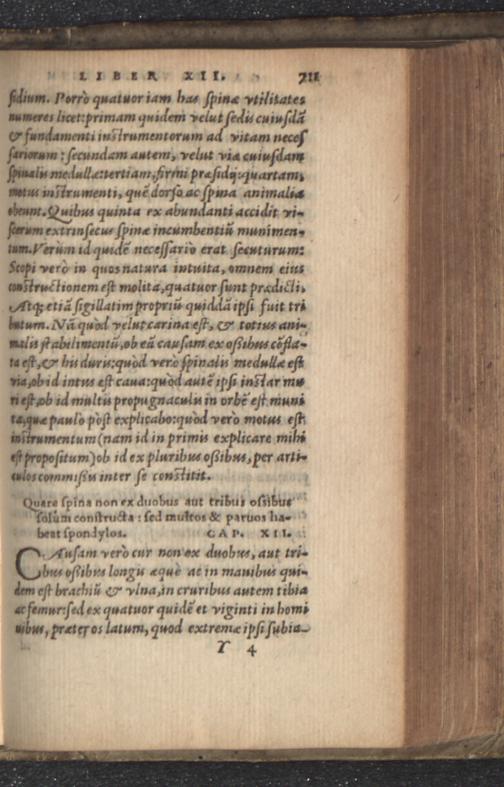 LIBER XII. 711
sidium. Porrò quatuor iam has spinæ vtilitates
numeres licet: primam quidem velut sedis cuiusdã
& fundamenti instrumentorum ad vitam neces
sariorum: secundam autem, velut viæ cuiusdam
spinalis medullæ: tertiam, firmi præsidij: quartam,
motus instrumenti, quẽ dorso ac spina animalia
obeunt. Quibus quinta ex abundanti accidit vi-
scerum extrinsecus spinæ incumbentiũ munimen-
tum. Verùm id quidẽ necessariò erat secuturum:
Scopi verò in quos natura intuita, omnem eius
constructionem est molita, quatuor sunt prædicti.
Atq; etiã sigillatim propriũ quiddã ipsi fuit tri
butum. Nã quòd velut carina est, & totius ani-
malis stabilimentũ, ob eã causam ex ossibus cõsta-
ta est, & his duris: quòd verò spinalis medullæ est
via, ob id intus est caua: quòd autẽ ipsi instar mu
ri est, ob id multis propugnaculis in orbẽ est muni
ta, quæ paulò pòst explicabo: quòd verò motus est
instrumentum (nam id in primis explicare mihi
est propositum) ob id ex pluribus ossibus, per arti-
culos commissis inter se constitit.
Quare spina non ex duobus aut tribus ossibus
solùm constructa: sed multos & paruos ha-
beat spondylos. CAP. XII.
CAusam verò cur non ex duobus, aut tri-
bus ossibus longis æquè ac in manibus qui-
dem est brachiũ & vlna, in cruribus autem tibia
ac femur: sed ex quatuor quidẽ et viginti in homi
nibus, præter os latum, quod extremæ ipsi subia-
Y 4